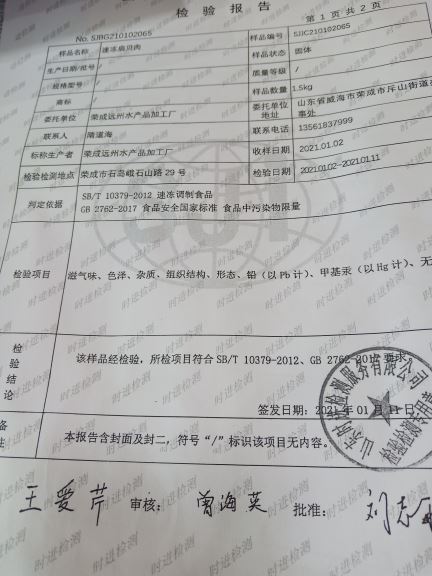 检 验 报 告
第 1 页 共 2 页
No. SJBG210102065
样品编号 SJJC210102065
样品名称 速冻扇贝肉
样品状态 固体
生产日期/批号 /
质量等级 /
规格型号 /
样品数量 1.5kg
商标 /
委托单位地址 山东省威海市荣成市斥山街道
事处
委托单位 荣成远州水产品加工厂
联系人 隋道海
联系电话 13561837999
标称生产者 荣成远州水产品加工厂
收样日期 2021.01.02
检验检测地点 荣成市石岛峨石山路 29 号
检验日期 20210102-20210111
判定依据 SB/T 10379-2012 速冻调制食品
GB 2762-2017 食品安全国家标准 食品中污染物限量
检验项目 滋气味、色泽、杂质、组织结构、形态、铅（以 Pb 计）、甲基汞（以 Hg 计）、无
检验结论
该样品经检验，所检项目符合 SB/T 10379-2012、GB 2762-2017 要求。
签发日期：2021 年 01 月 11 日
山东时进检测服务有限公司
检验检测专用章
备注 本报告含封面及封二，符号“/”标识该项目无内容。
王爱芹 审核： 曾海英 批准： 刘志
时进检测